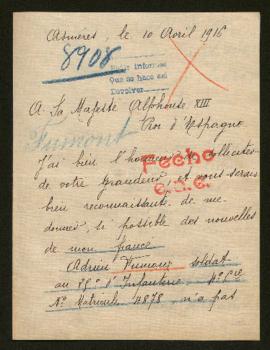 Asnieres, le 10 Avril 1916
8908
Que se hace así
Devolver
A Sa Majesté Alphonse XIII
Roi d'Espagne
Fumont
J'ai bien l'honneur de solliciter
Fecha
de votre Grandeur, et vous serais
bien reconnaissante de me
donner si possible des nouvelles
de mon fiancé
Adrien Fumont soldat
d'Infanterie,
N° Matricule 4878, n'a pas